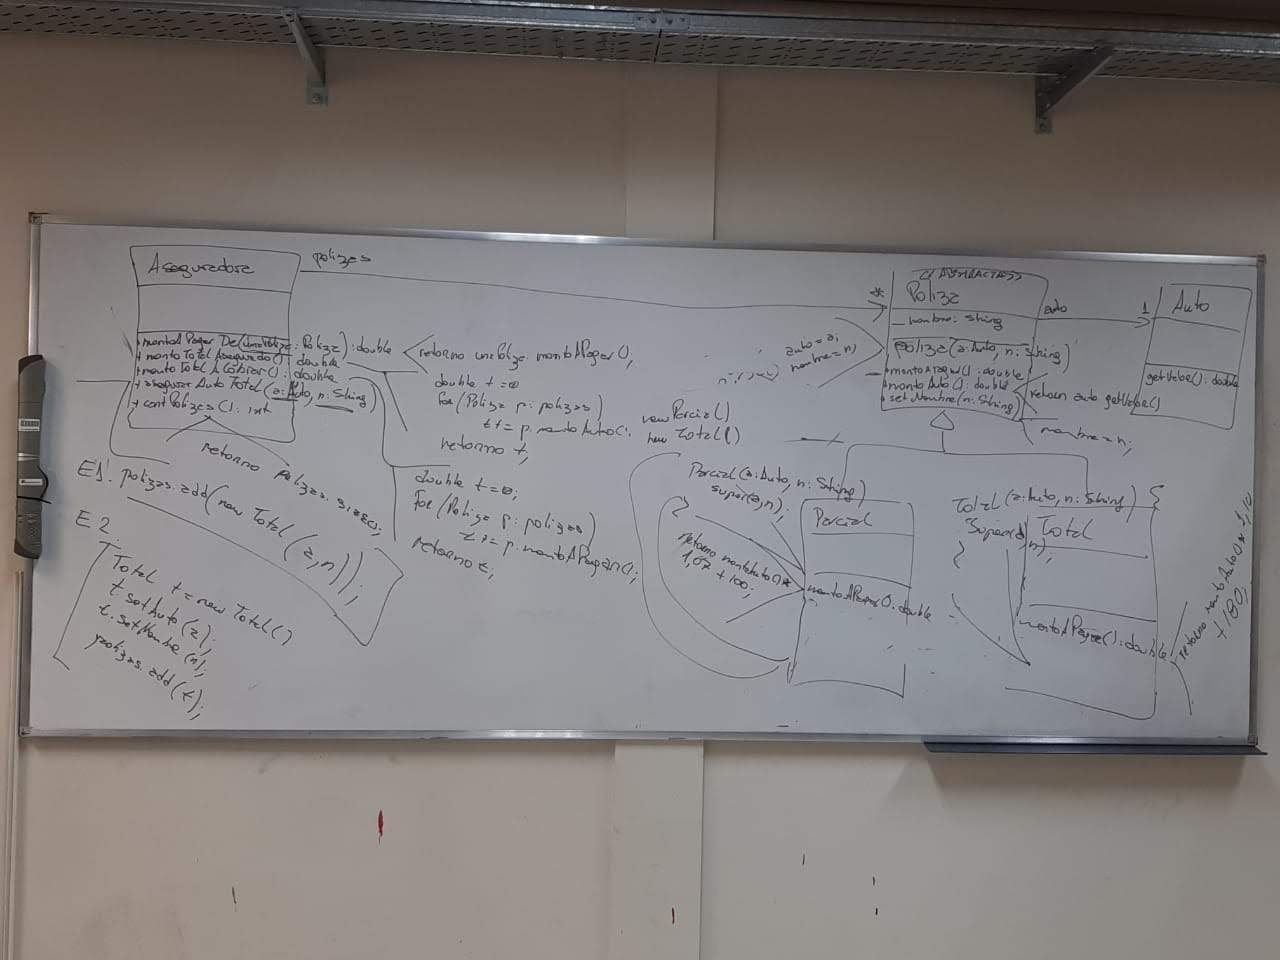 Aseguradora
polizas
+ montoAPagarDe(unaPoliza: Poliza): double
+ montoTotalAsegurado(): double
+ montoTotalACobrar(): double
+ asegurarAutoTotal(a: Auto, n: String)
+ contPolizas(): int
retorno unaPoliza.montoAPagar();
double t=0
for(Poliza p: polizas)
t+= p.montoAuto();
retorno t;
double t=0;
for(Poliza p: polizas)
t+= p.montoAPagar();
retorno t;
retorno polizas.size();
E1: polizas.add(new Total(a,n));
E2:
Total t = new Total()
t.setAuto(a);
t.setNombre(n);
polizas.add(t);
new Parcial()
new Total()
*
<<ABSTRACTA>>
Poliza
- nombre: String
Poliza(a: Auto, n: String)
+ montoAPagar(): double
+ montoAuto(): double
+ setNombre(n: String)
auto = a;
nombre = n;
return auto.getValor()
nombre = n;
auto
1
Auto
getValor(): double
Parcial(a: Auto, n: String)
super(a,n);
}
Parcial
montoAPagar(): double
retorno montoAuto()*
1,07 + 100;
Total(a: Auto, n: String) {
super(a,n);
}
Total
montoAPagar(): double
retorno montoAuto() * 1,10
+ 180;